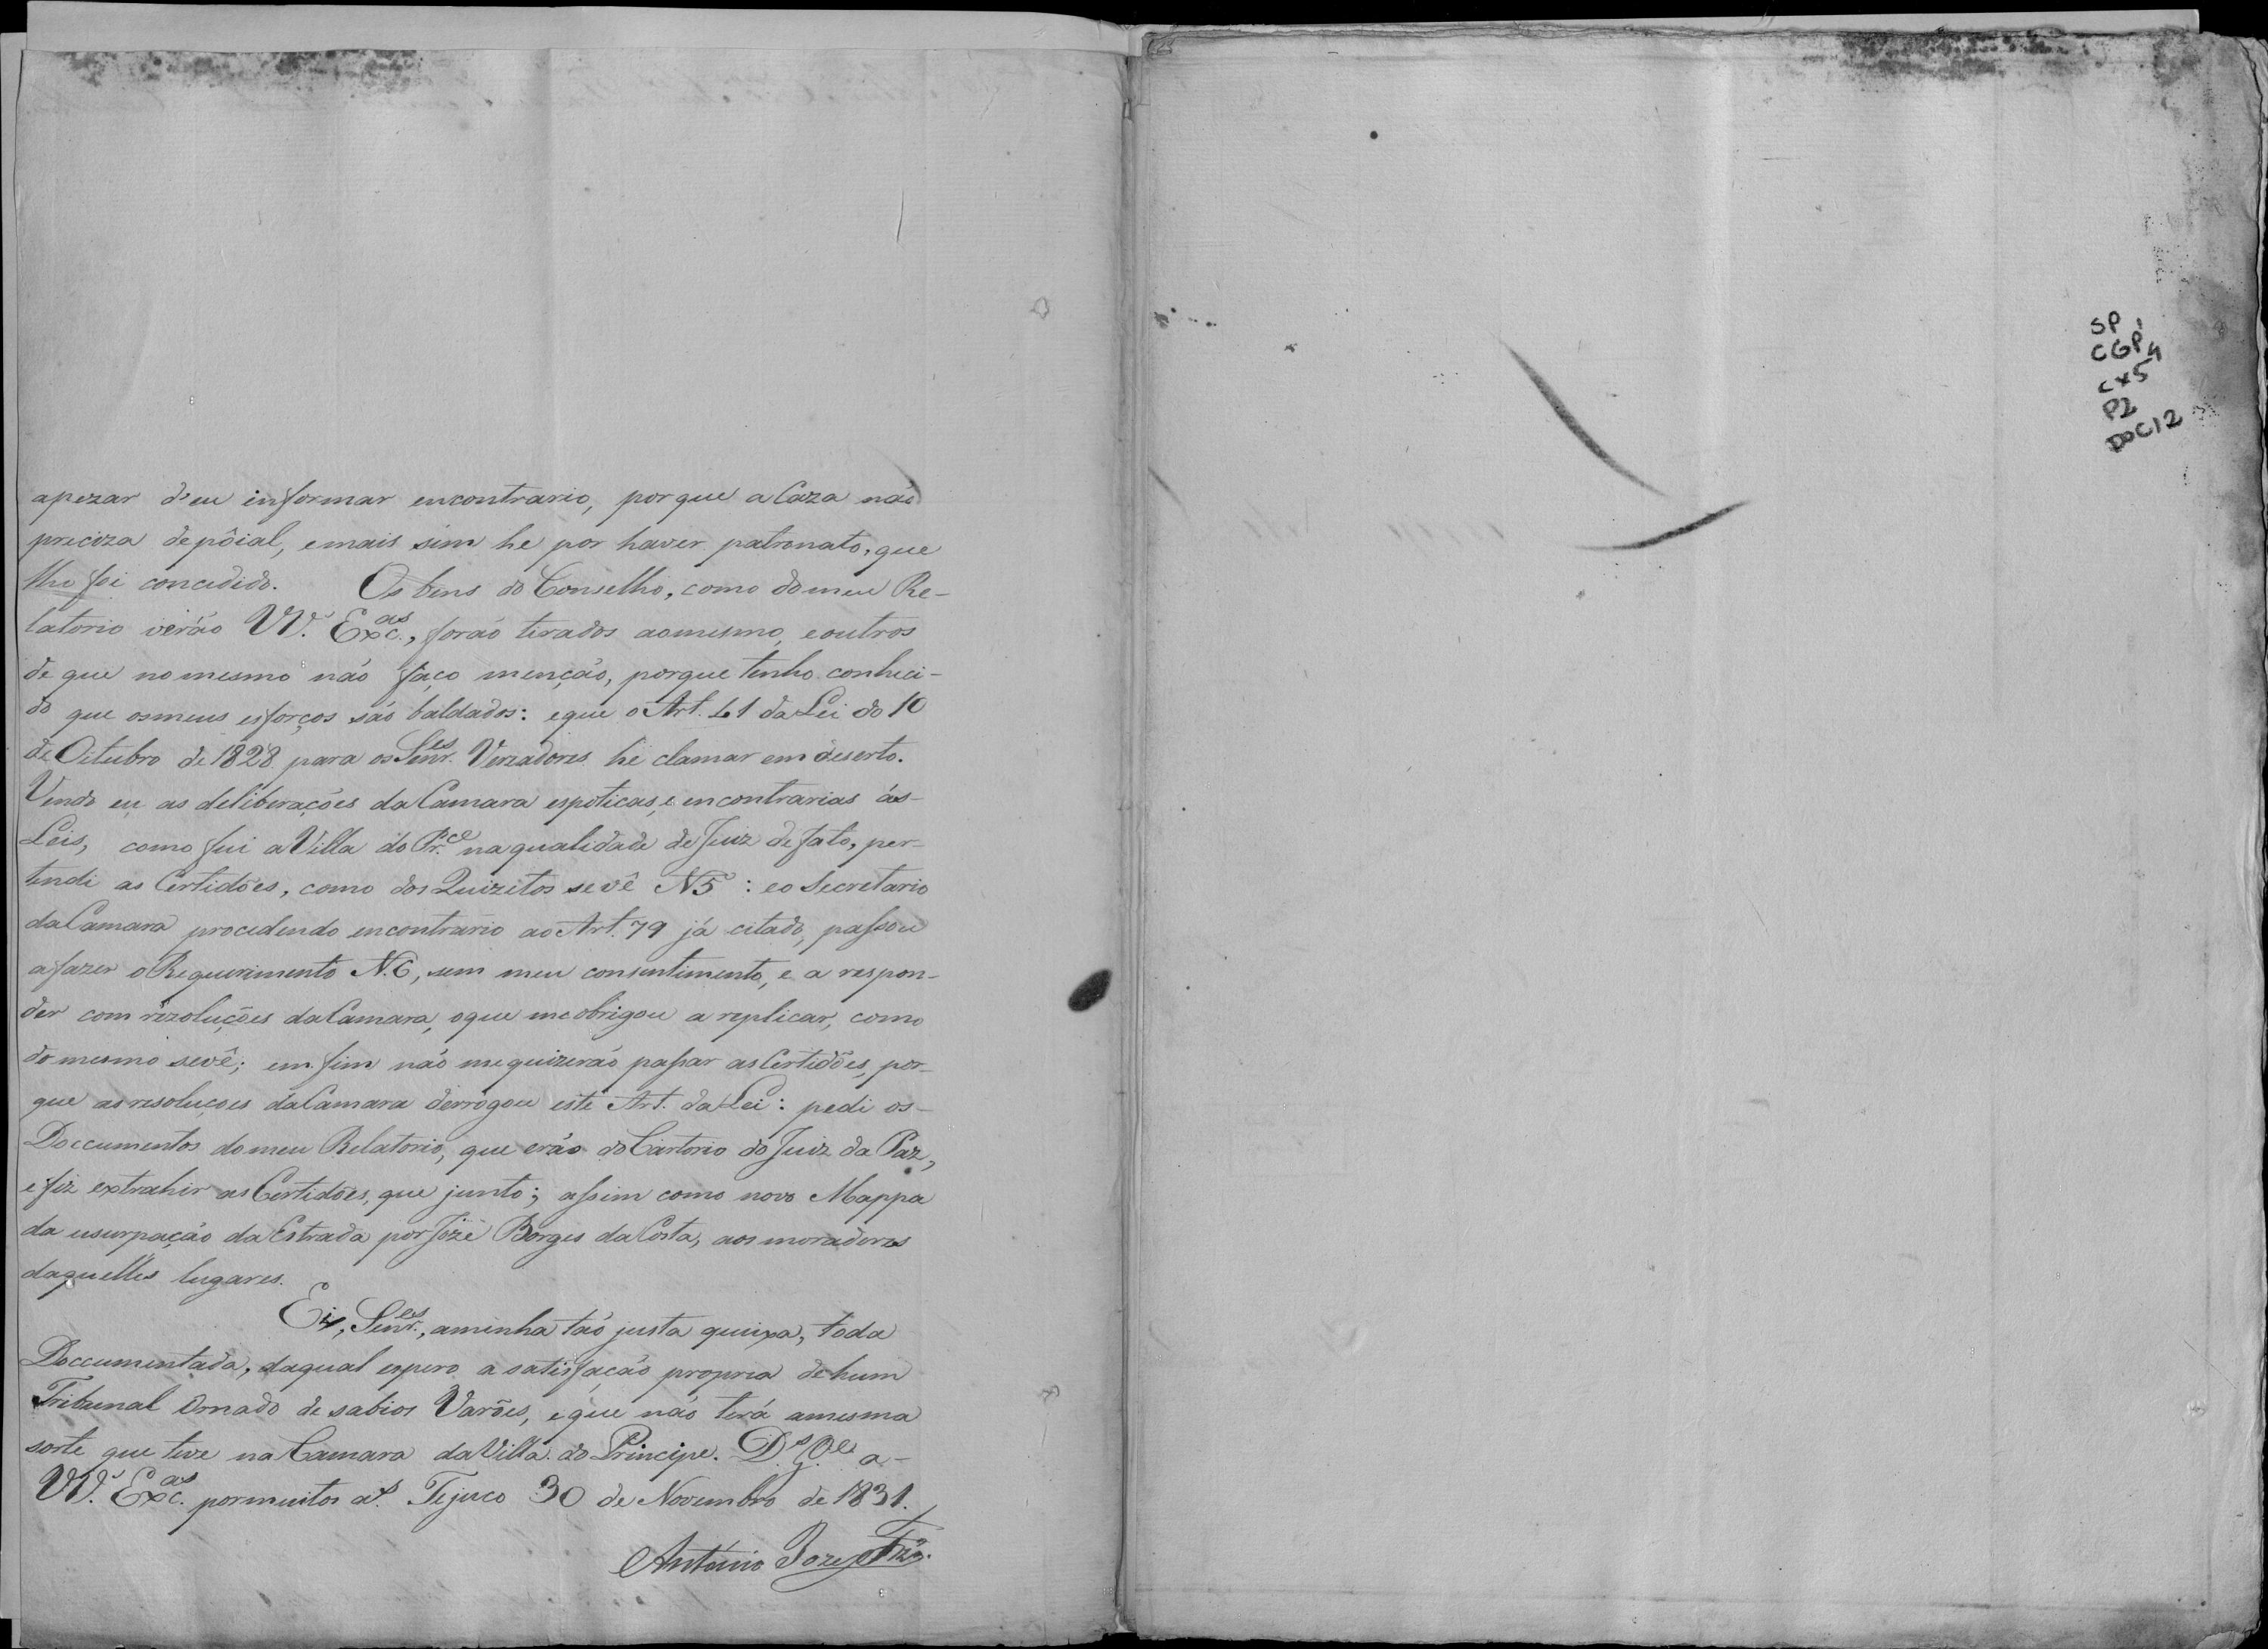 apezar d'eu informar encontrario, porque a Caza não
preciza depôial, emais sim he por haver patronato, que
lhe foi concedido. Os bens do Conselho, como domeu Re-
latorio verão VV. Exc.as, forão tirados aomesmo, eoutros
de que nomesmo não faço menção, porque tenho conheci-
do que osmeus esforços são baldados: eque o Art. 41 da Lei do 1º
de Oitubro de 1828 para os Senr.es Vereadores he clamar em deserto.
Vendo eu as deliberações da Camara espoticas, e encontrarias ás-
Leis, como fui a Villa do Pr.ce na qualidade de Juiz de fato, per-
tendi as Certidões, como dos Quizitos sevê N5: eo Secretario
da Camara procedendo encontrario ao Art. 79 já citado, passou
afazer o Requerimento N.6, sem meu consentimento, e a respon-
der com rezoluções da Camara, oque meobrigou a replicar, como
do mesmo sevê; em fim não mequizerão passar as Certidões, por-
que as resoluçoes da Camara derrogou este Art. da Lei: pedi os-
Doccumentos domeu Relatorio, que erão do Cartorio do Juiz da Paz,
e fiz extrahir as Certidões, que junto; assim como novo Mappa
da usurpação da Estrada por Jozé Borges da Costa, aos moradores
daquelles lugares.
Eis, Senr.es, aminha tão justa queixa, toda
Doccumentada, daqual espero a satisfação propria de hum
Tribunal Ornado de sabios Varões, eque não terá amesma
sorte que teve na Camara da Villa do Principe. D.s G.e a-
VV. Exc.as pormuitos a.s Tejuco 30 de Novembro de 1831.
António Joze
SP
CGP1
CX54
P2
DOC12